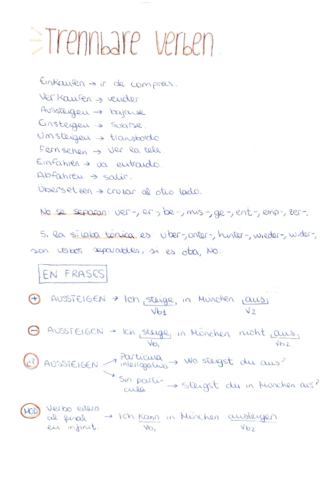 Trennbare verben
Einkaufen → ir de compras.
Verkaufen → vender
Aussteigen → bajarse
Einsteigen → subirse.
Umsteigen → transbordo
Fernsehen → ver la tele
Einfahren → va entrando.
Abfahren → salir.
Übersetzen → cruzar al otro lado.
No se separan ver-, er-, be-, mis-, ge-, ent-, emp-, zer-.
Si la sílaba tónica es über-, unter-, hinter-, wieder-, wider-,
son verbos separables, si es otra, NO.
EN FRASES
+ AUSSTEIGEN → Ich steige, in München aus,
Vb1 V2
- AUSSTEIGEN → Ich steige, in München nicht aus,
Vb1 Vb2
¿? AUSSTEIGEN → Partícula interrogativa → Wo steigst du aus?
→ Sin partícula → Steigst du in München aus?
MOD Verbo entero
al final → Ich kann in München aussteigen
en infinit. Vb1 Vb2